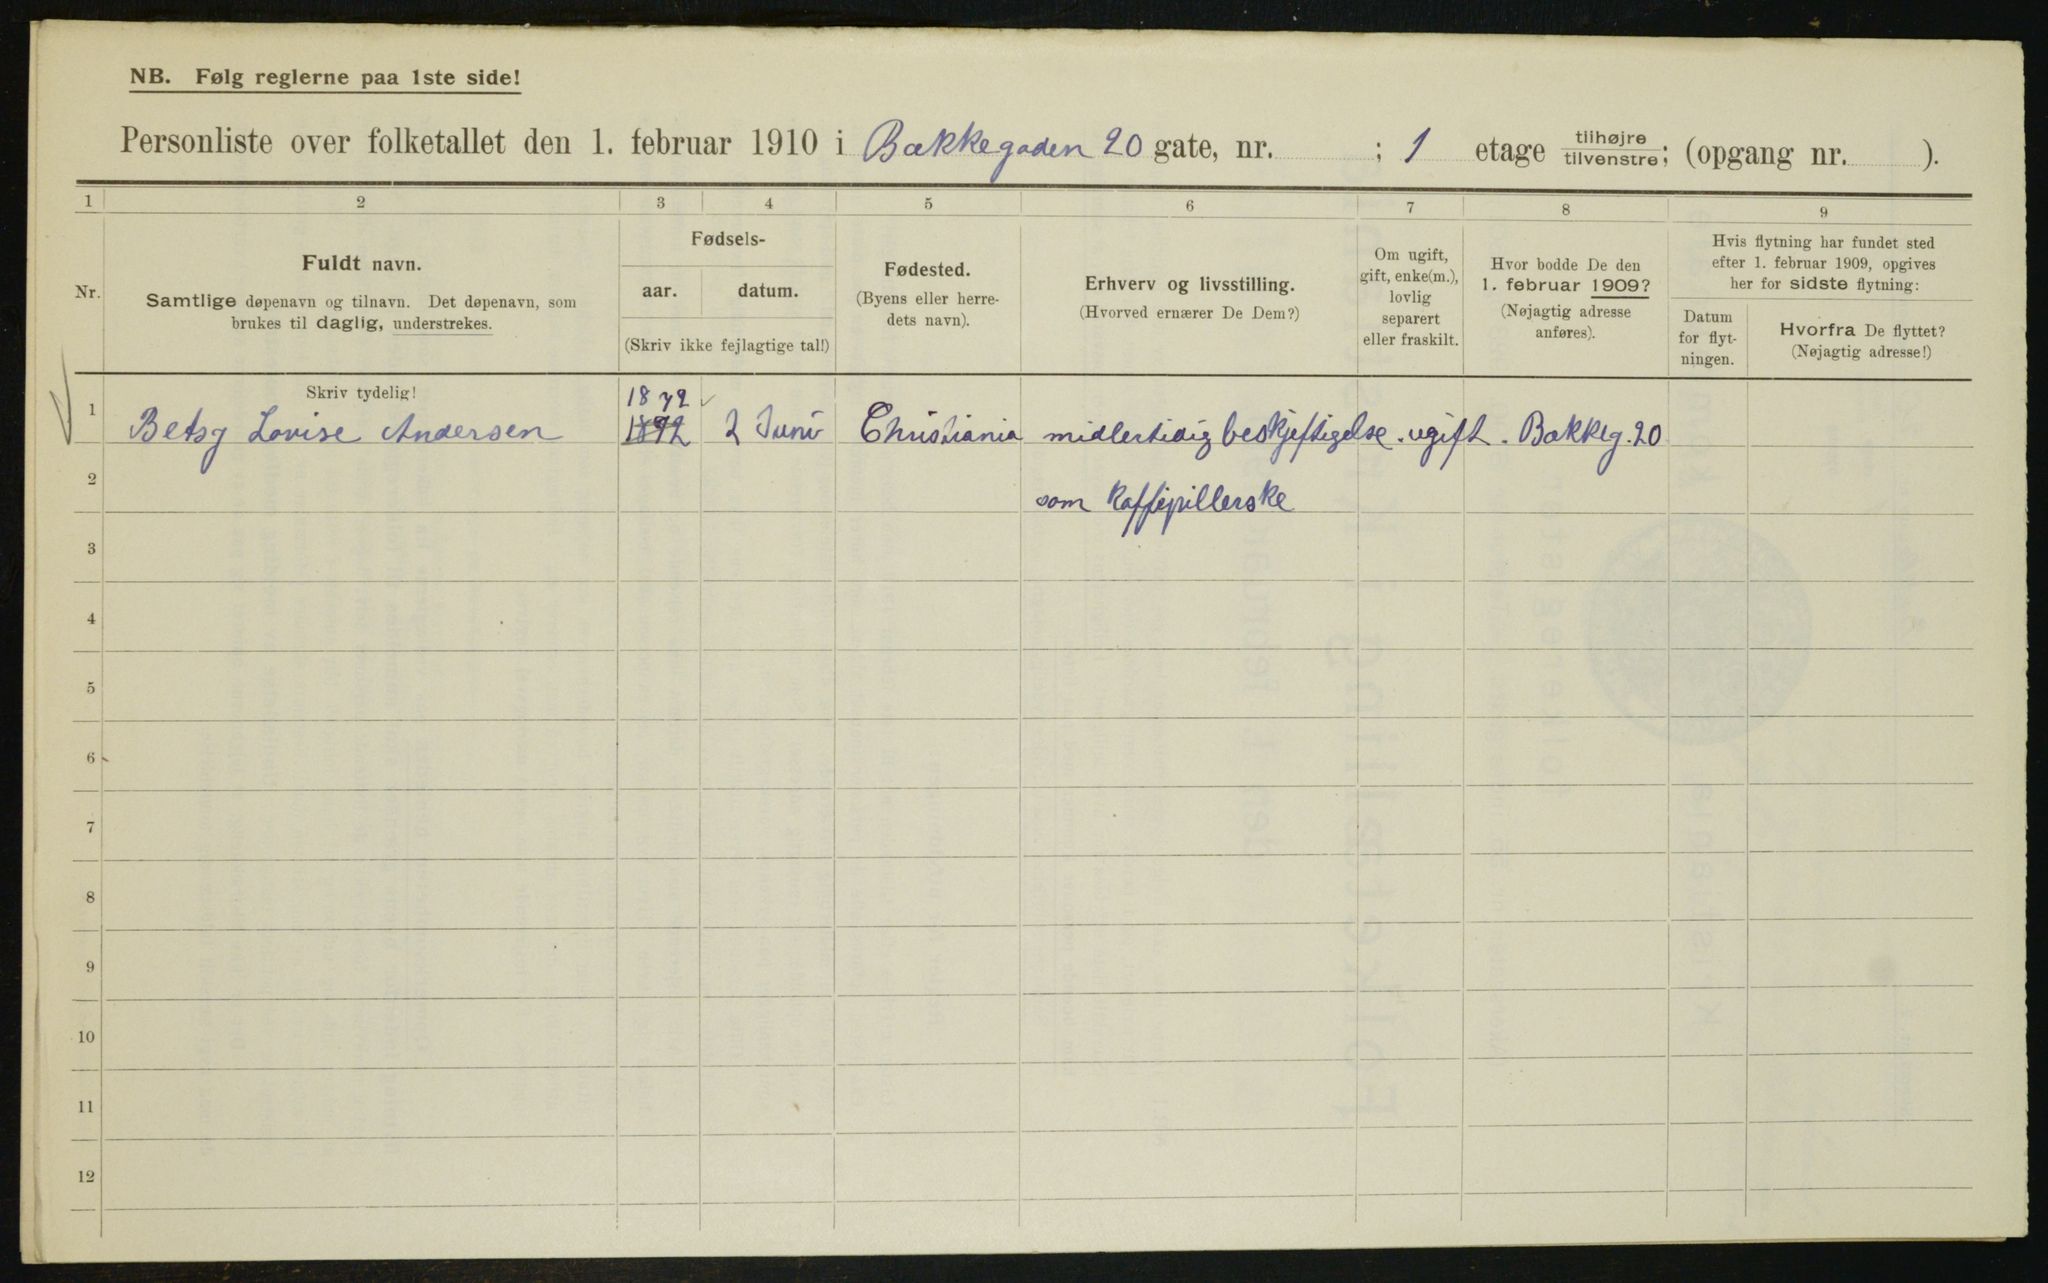 NB. Følg reglerne paa 1ste side!
Personliste over folketallet den 1. februar 1910 i Bakkegaden 20 gate, nr. ; 1 etage tilhøjre/tilvenstre; (opgang nr. ).
1 2 3 4 5 6 7 8 9
Nr.
Fuldt navn.
Samtlige døpenavn og tilnavn. Det døpenavn, som
brukes til daglig, understrekes.
Fødsels-
aar. datum.
(Skriv ikke fejlagtige tal!)
Fødested.
(Byens eller herre-
dets navn).
Erhverv og livsstilling.
(Hvorved ernærer De Dem?)
Om ugift,
gift, enke(m.),
lovlig
separert
eller fraskilt.
Hvor bodde De den
1. februar 1909?
(Nøjagtig adresse
anføres).
Hvis flytning har fundet sted
efter 1. februar 1909, opgives
her for sidste flytning:
Datum
for flyt-
ningen.
Hvorfra De flyttet?
(Nøjagtig adresse!)
Skriv tydelig!
1872
1 Betsy Lovise Andersen 1892 2 Juni Christiania midlertidig beskjeftigelse . ugift . Bakkeg. 20
2 som kaffepillerske
3
4
5
6
7
8
9
10
11
12